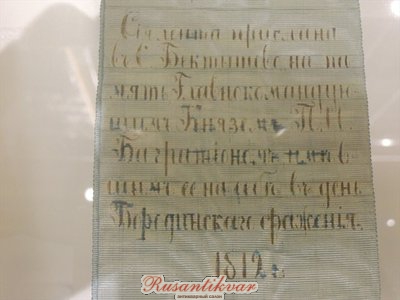 Сiя лента прислана
въ С. Бектышево на па
мять Главнокомандую
щимъ Княземъ П. И.
Багратiономъ имѣв
шимъ ее на себѣ въ день
Бородинскаго сраженiя.
1812 г.
Rusantikvar
антикварный салон